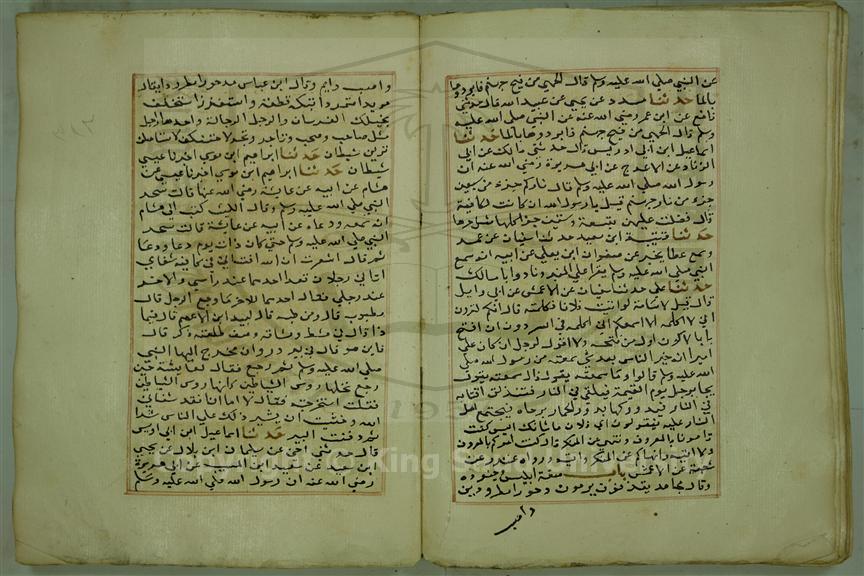 عن النبي صلى الله عليه وسلم قال الحمى من فيح جهنم فابردوها
بالماء حدثنا مسدد عن يحيى عن عبيد الله قال حدثني
نافع عن ابن عمر رضي الله عنه عن النبي صلى الله عليه
وسلم قال الحمى من فيح جهنم فابردوها بالماء حدثنا
اسماعيل ابن ابي اويس قال حدثني مالك عن ابي
الزناد عن الاعرج عن ابي هريرة رضي الله عنه ان
رسول الله صلى الله عليه وسلم قال ناركم جزء من سبعين
جزء من نار جهنم قيل يا رسول الله ان كانت لكافية
قال فضلت عليهن بتسعة وستين جزا كلها مثل حرها
حدثنا قتيبة ابن سعيد حدثنا سفيان عن عمرو
وسمع عطا يخبر عن صفوان ابن يعلى عن ابيه انه سمع
النبي صلى الله عليه وسلم يقرا على المنبر ونادوا يا مالك
حدثنا علي حدثنا سفيان عن الاعمش عن ابي وايل
قال قيل لاسامة لو اتيت فلانا فكلمته قال انكم لترون
اني لا اكلمه الا اسمعكم اني اكلمه في السر دون ان افتح
بابا لا اكون اول من فتحه ولا اقول لرجل ان كان علي
اميرا انه خير الناس بعد شي سمعته من رسول الله صلى
الله عليه وسلم قالوا وما سمعته يقول قال سمعته يقول
يجا برجل يوم القيمة فيلقى في النار فتندلق اقتابه
في النار فيدور كما يدور الحمار برحاه فيجتمع اهل
النار عليه فيقولون اي فلان ما شانك اليس كنت
تامرنا بالمعروف وتنهى عن المنكر قال كنت امركم بالمعروف
ولا اتيه وانهاكم عن المنكر واتيه ورواه غندر عن
شعبة عن الاعمش باب صفة ابليس وجنوده
وقال مجاهد يقذفون يرمون دحورا مطرودين
واصب
واصب دايم وقال ابن عباس مدحورا مطرودا يقال
مريدا متمردا بتكه قطعه واستفزز استخف
بخيلك الفرسان والرجل الرجالة واحدها راجل
مثل صاحب وصحب وتاجر وتجر لاحتنكن لاستاصلن
قرين شيطان حدثنا ابراهيم ابن موسى اخبرنا عيسى
شيطان حدثنا ابراهيم ابن موسى اخبرنا عيسى عن
هشام عن ابيه عن عايشة رضي الله عنها قالت سحر
النبي صلى الله عليه وسلم وقال الليث كتب الي هشام
انه سمعه ووعاه عن ابيه عن عائشة قالت سحر
النبي صلى الله عليه وسلم حتى كان ذات يوم دعا ودعا
ثم قال اشعرت ان الله افتاني في ما فيه شفاي
اتاني رجلان فقعد احدهما عند راسي والاخر
عند رجلي فقال احدهما للاخر ما وجع الرجل قال
مطبوب قال ومن طبه قال لبيد ابن الاعصم قال فيما
ذا قال في مشط ومشاقه وجف طلعة ذكر قال
فاين هو قال في بير ذروان فخرج اليها النبي
صلى الله عليه وسلم ثم رجع فقال لعائشة حين
رجع نخلها روس الشياطين كانها روس الشياطين
فقلت استخرجته فقال لا اما انا فقد شفاني
الله وخشيت ان يثير ذلك على الناس شرا
ثم دفنت البير حدثنا اسماعيل ابن ابي اويس
قال حدثني اخي عن سليمان ابن بلال عن يحيى
ابن سعيد عن سعيد ابن المسيب عن ابي هريرة
رضي الله عنه ان رسول الله صلى الله عليه وسلم